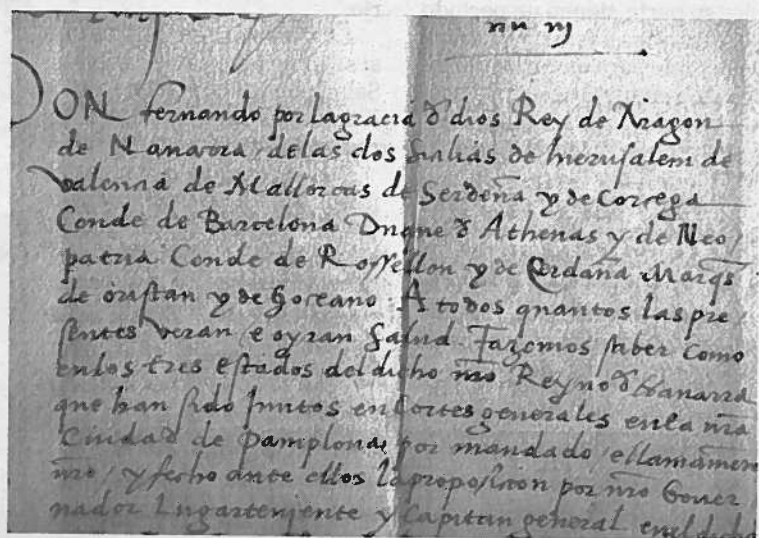 nu iij
DON fernando por la gracia d dios Rey de Aragon
de Nauarra de las dos Sicilias de hierusalem de
valencia de Mallorcas de Serdeña y de Corcega
Conde de Barcelona Duque d Athenas y de Neo
patria Conde de Rossellon y de Cerdaña Marqs
de oristan y de Goceano. A todos quantos las pre
sentes veran e oyran Salud. Fazemos saber como
en los tres estados del dicho nro Reyno d Nauarra
que han sido juntos en Cortes generales en la nra
Ciudad de Pamplona, por mandado, e llamamien
nro, y fecho ante ellos la proposicion por nro Gouer
nador Lugarteniente y Capitan general en el dicho